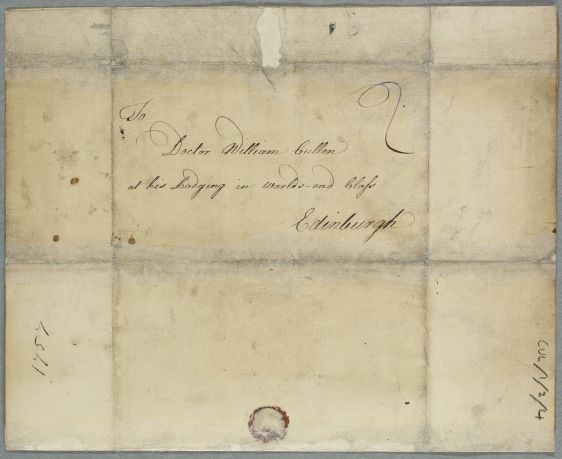 To
Doctor William Cullen
at his Lodging in Warlds-end Closs
Edinburgh
2
1757
CUL/1/2/4